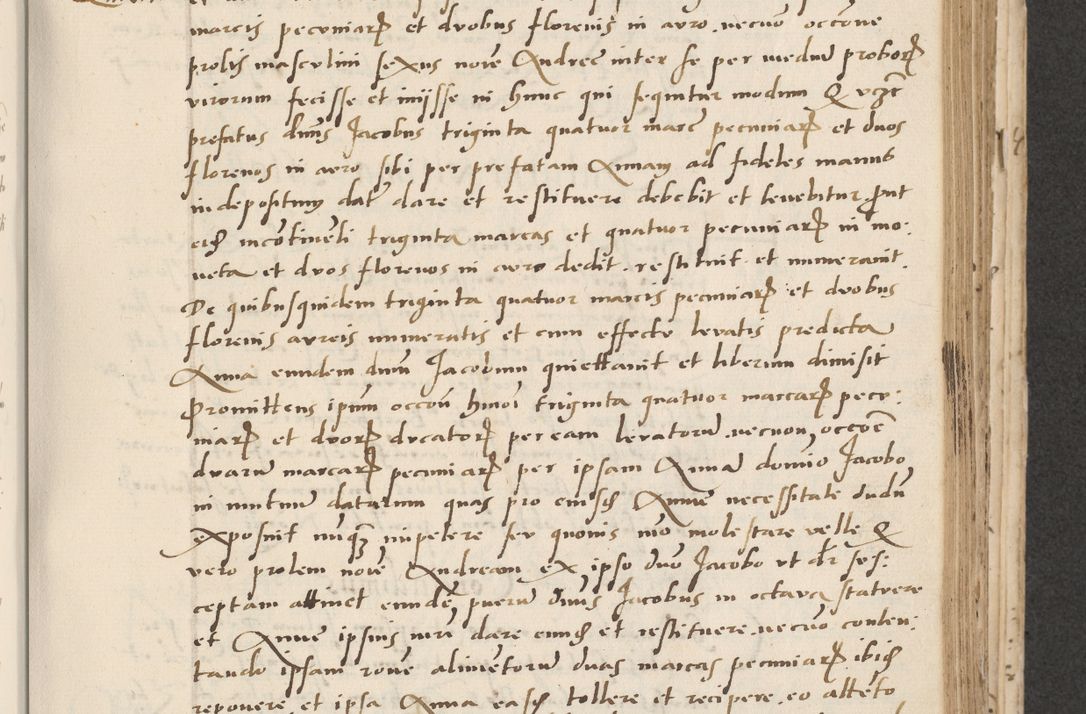 marcis pecuniarꝝ et duobus florenis in auro necnō occōne
prolis masculini sexus noīe Andreē inter se per mediū proborꝝ
virorum fecisse et iniisse in hunc qui sequitur modum Q vꝫꝫ
prefatus dnūs Jacobus triginta quatuor marē pecuniarꝝ et duos
florenos in auro sibi per prefatam Annam ad fideles manus
in depositum dat̄ dare et restituere debebit et tenebitur ꝓut
eidē incontinēti triginta marcas et quatuor pecuniarꝝ in mo:
neta et duos florenos in auro dedit restituit et numerauit.
De quibusquidem triginta quatuor marcis pecuniarꝝ et duobus
florenis aureis numeratis et cum effectu levatis predicta
Anna eundem dnūm Jacobum quiettauit et liberum dimisit
Promittens ipsum occōn hmōi triginta quatuor marcarꝝ pecu:
niarꝝ et duorꝝ ducatorꝝ per eam levatorū necnon occōne
duarū marcarꝝ pecuniarꝝ per ipsam Annā domino Jacobo
in mutuum datarum quas pro eiusdē Anne necessitate dudū
exposuit nunqꝫ impetere seu quouis mō molestare velle Q
vero prolem noīe Andream ex ipso dnō Jacobo vt dr̄ sus:
ceptam attinet eundē puerū dnūs Jacobus in octava statuere
et Anne ipsius mr̄i dare eundē et restituere necnō conten:
tando ipsam rōne alimentorū duas marcas pecuniarꝝ ibidē
reponere et ipsa Anna easdē tollere et recipere eo attēto